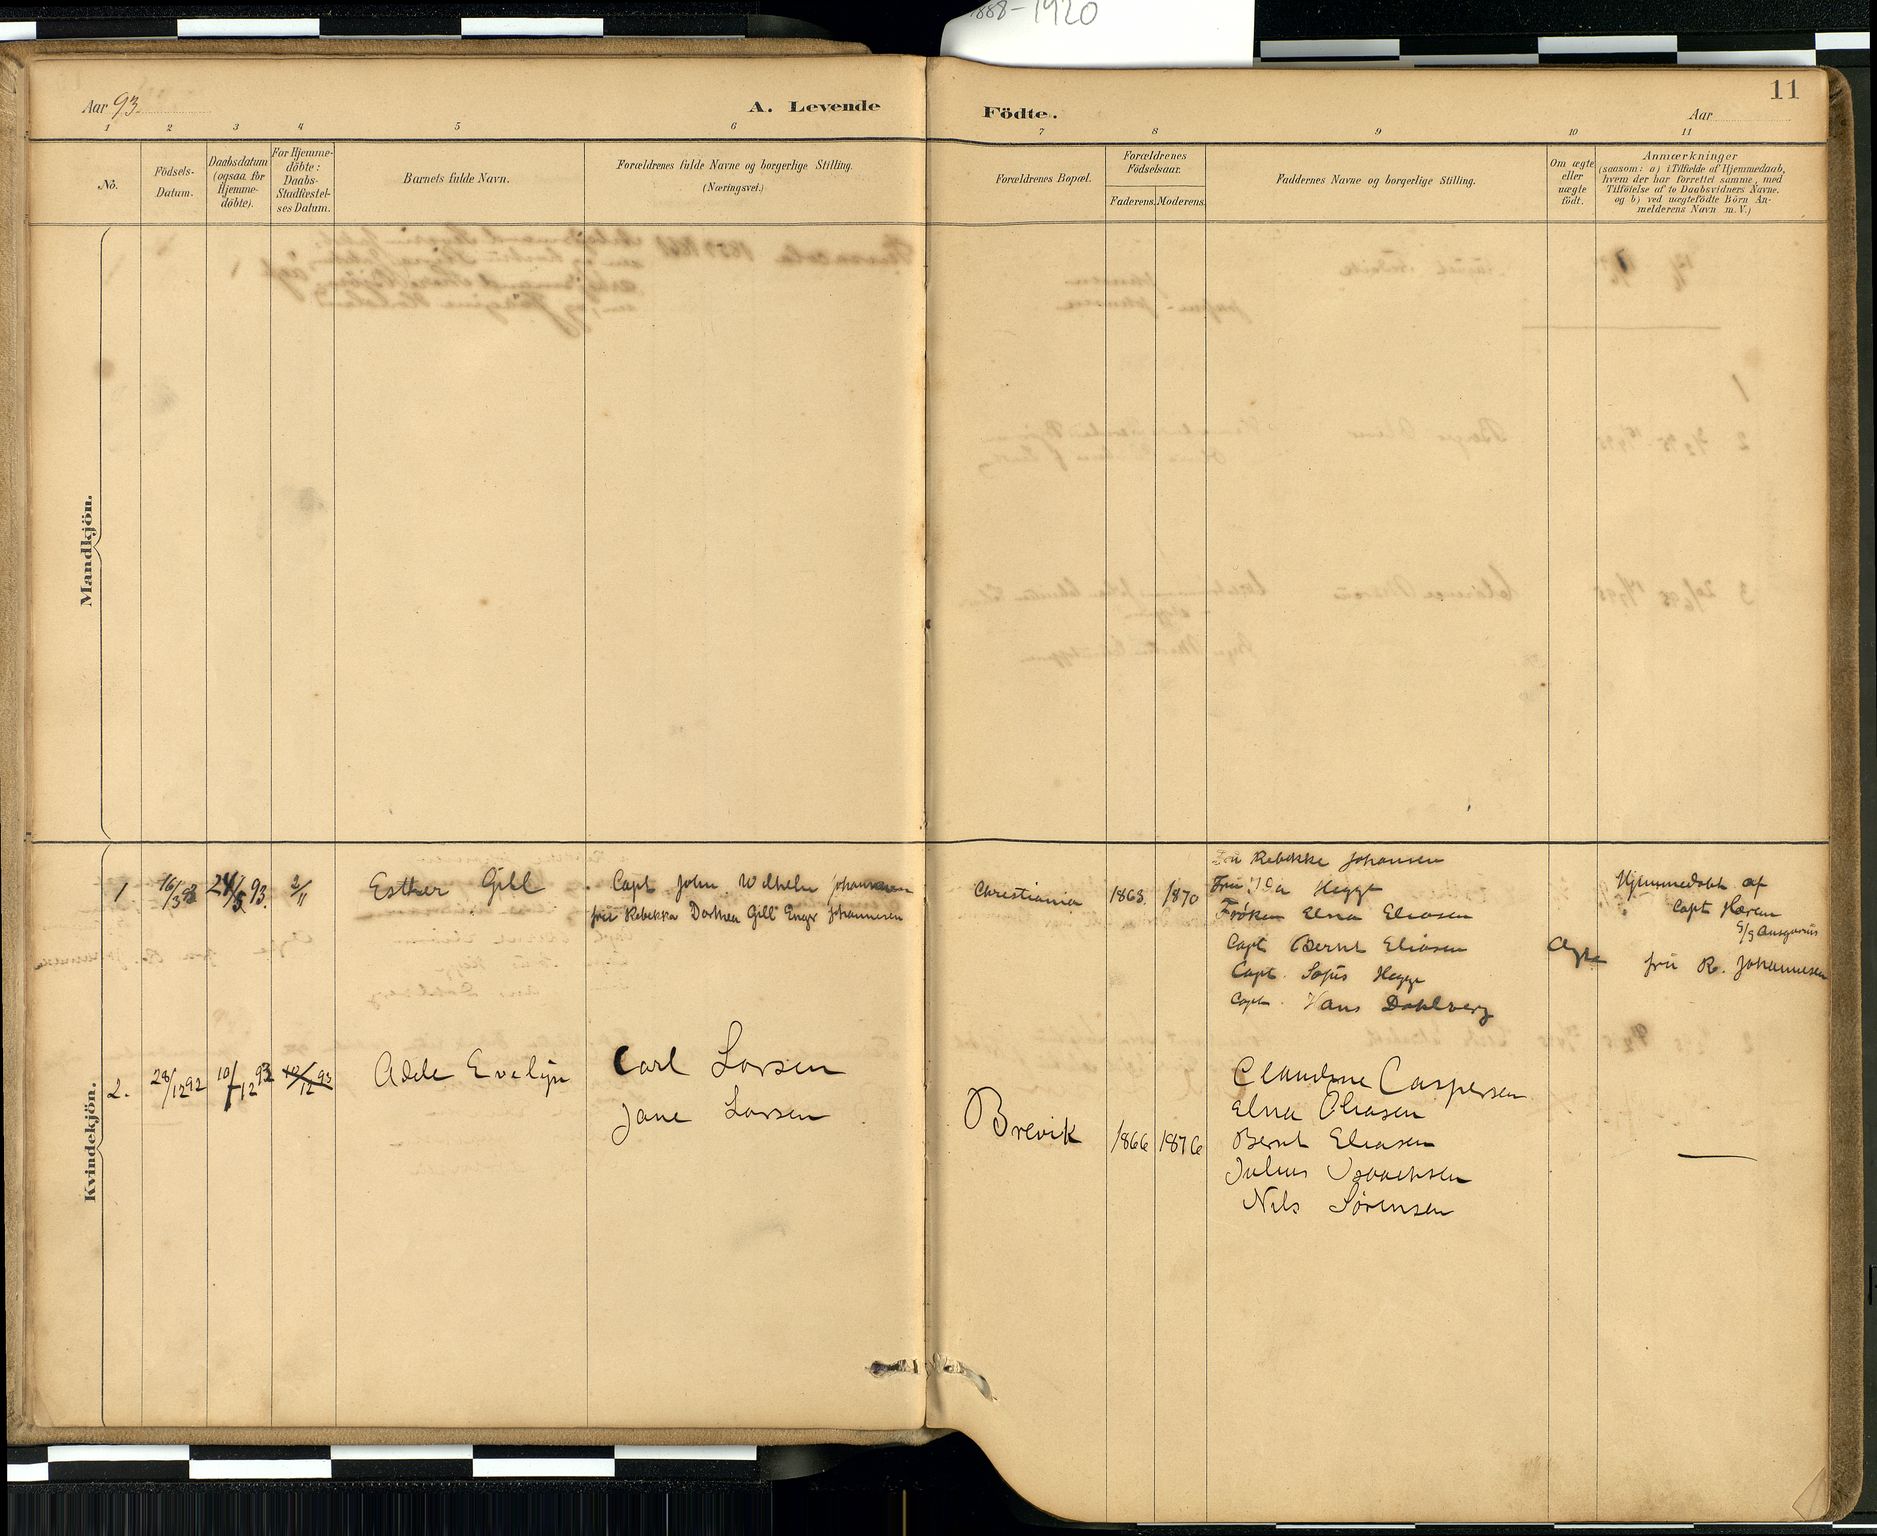 1888-1920
11
Aar 93.
A. Levende
Födte.
Aar
1 2 3 4 5 6 7 8 9 10 11
No.
Födsels-
Datum.
Daabsdatum
(ogsaa for
Hjemme-
döbte).
For Hjemme-
döbte:
Daabs-
Stadfæstel-
ses Datum.
Barnets fulde Navn.
Forældrenes fulde Navne og borgerlige Stilling.
(Næringsvei.)
Forældrenes Bopæl.
Forældrenes
Födselsaar.
Faderens. Moderens.
Faddernes Navne og borgerlige Stilling.
Om ægte
eller
uægte
födt.
Anmærkninger
(saasom: a) i Tilfælde af Hjemmedaab,
hvem der har forrettet samme, med
Tilföielse af to Daabsvidners Navne.
og b) ved uægtefödte Börn An-
melderens Navn m. V.)
Mandkjön.
Kvindekjön.
1
16/3 93
24/5 93.
2/11
Esther Gill
Capt. John Wilhelm Johannesen
fru Rebekka Dorthea Gill Enger Johannesen
Christiania
1863.
1870
Fru Rebekke Johansen
Fru Ida Hegge
Frøken Elna Eliasen
Capt Bernt Eliasen
Capt. Sofus Hegge
Capt. Hans Dahlberg
Ægte
Hjemmedobt af
Capt Hæren
S/S Ansgarius
fru R. Johannesen
2.
28/12 92
10/12 93
10/12 93
Adele Evelyn
Carl Larsen
Jane Larsen
Brevik
1866
1876
Claudine Caspersen
Elna Eliasen
Bernt Eliasen
Julius Isaachsen
Nils Sørensen